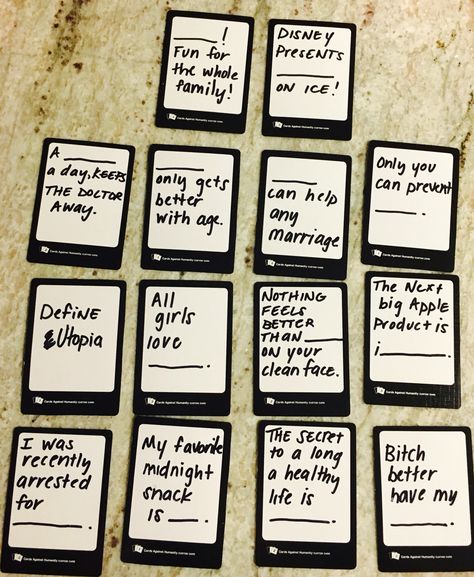 ______!
Fun for
the whole
family!
Cards Against Humanity CUSTOM CARD
DISNEY
PRESENTS
______
ON ICE!
Cards Against Humanity CUSTOM CARD
A ______
a day, KEEPS
THE DOCTOR
AWAY.
Cards Against Humanity CUSTOM CARD
______
only gets
better
with age.
Cards Against Humanity CUSTOM CARD
______
can help
any
marriage
Cards Against Humanity CUSTOM CARD
Only you
can prevent
______.
Cards Against Humanity CUSTOM CARD
DEFINE
Utopia
Cards Against Humanity CUSTOM CARD
All
girls
love
______.
Cards Against Humanity CUSTOM CARD
NOTHING
FEELS
BETTER
THAN ______
ON your
clean face.
Cards Against Humanity CUSTOM CARD
The Next
big Apple
Product is
i______.
Cards Against Humanity CUSTOM CARD
I was
recently
arrested
for
______.
Cards Against Humanity CUSTOM CARD
My favorite
midnight
snack
is ____.
Cards Against Humanity CUSTOM CARD
THE SECRET
to a long
a healthy
life is
______.
Cards Against Humanity CUSTOM CARD
Bitch
better
have my
______.
Cards Against Humanity CUSTOM CARD